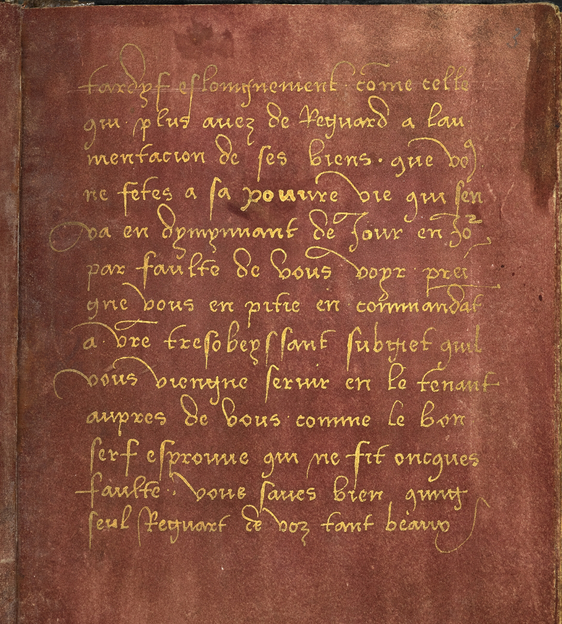 tardyf eslongnement côme celle
qui plus avez de Reguard a lau
mentacion de ses biens. que vo9
ne fetes a sa pouvre vie qui sen
va en dymynuant de Jour en Jo2
par faulte de vous voyr prei
gne vous en pitie en commandãt
a vr̃e tresobeyssant subgiet quil
vous viengne servir en le tenant
aupres de vous comme le bon
serf esprouve qui ne fit oncques
faulte. vous saves bien quung
seul Reguart de voz tant beaux